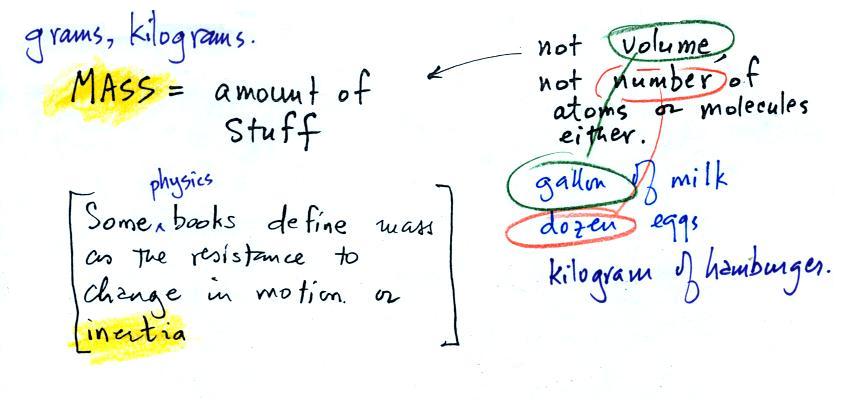 grams, kilograms.
MASS = amount of
stuff
physics
Some ^ books define mass
as the resistance to
change in motion. or
inertia
not volume
not number of
atoms or molecules
either.
gallon of milk
dozen eggs
kilogram of hamburger.